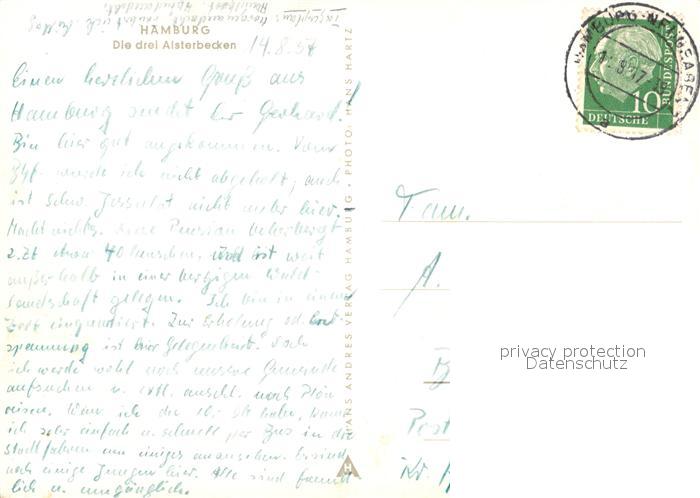 Tagesplan: Morgenandacht
HAMBURG
Die drei Alsterbecken
14.8.57
Einen herzlichen Gruß aus
Hamburg sendet Dir Gerhard.
Bin hier gut angekommen. Vom
Bhf. wurde ich nicht abgeholt, auch
ist Schw. nicht mehr hier.
Macht nichts. Pension beherbergt
z.Zt. etwa 40 Menschen, und ist weit
außerhalb in einer herrlichen Wald-
landschaft gelegen. Ich bin in einem
Zelt einquartiert. Zur Erholung od. Ent-
spannung ist hier Gelegenheit. Doch
ich werde wohl noch unsere Gemeinde
aufsuchen u. evtl. anschl. nach Plön
reisen. Wenn ich die habe, kann
ich sehr einfach u. schnell per Bus in die
Stadt fahren um einiges anzusehen. Es sind
noch einige Jungen hier. Alle sind freund-
lich u. umgänglich.
HANS ANDRES VERLAG HAMBURG · PHOTO: HANS HARTZ
HAMBURG-NEUGRABEN
DEUTSCHE
BUNDESPOST
10
Fam.
A.
B
Post
Kr.
privacy protection
Datenschutz